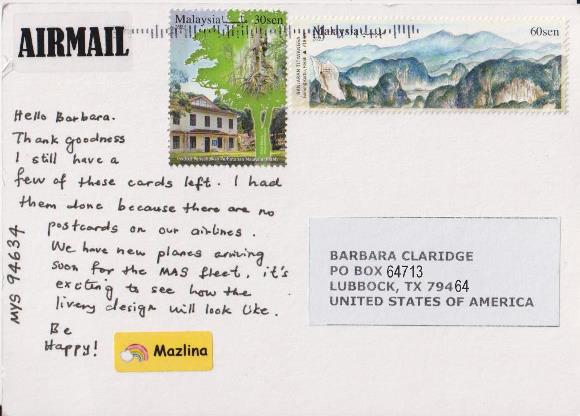 AIRMAIL
Malaysia
30sen
Malaysia
60sen
Institut Penyelidikan Perhutanan Malaysia (FRIM)
Hello Barbara.
Thank goodness
I still have a
few of these cards left. I had
them done because there are no
postcards on our airlines.
We have new planes arriving
soon for the MAS fleet, it's
exciting to see how the
livery design will look like.
Be
Happy!
Mazlina
MYS 94634
BARBARA CLARIDGE
PO BOX 64713
LUBBOCK, TX 79464
UNITED STATES OF AMERICA